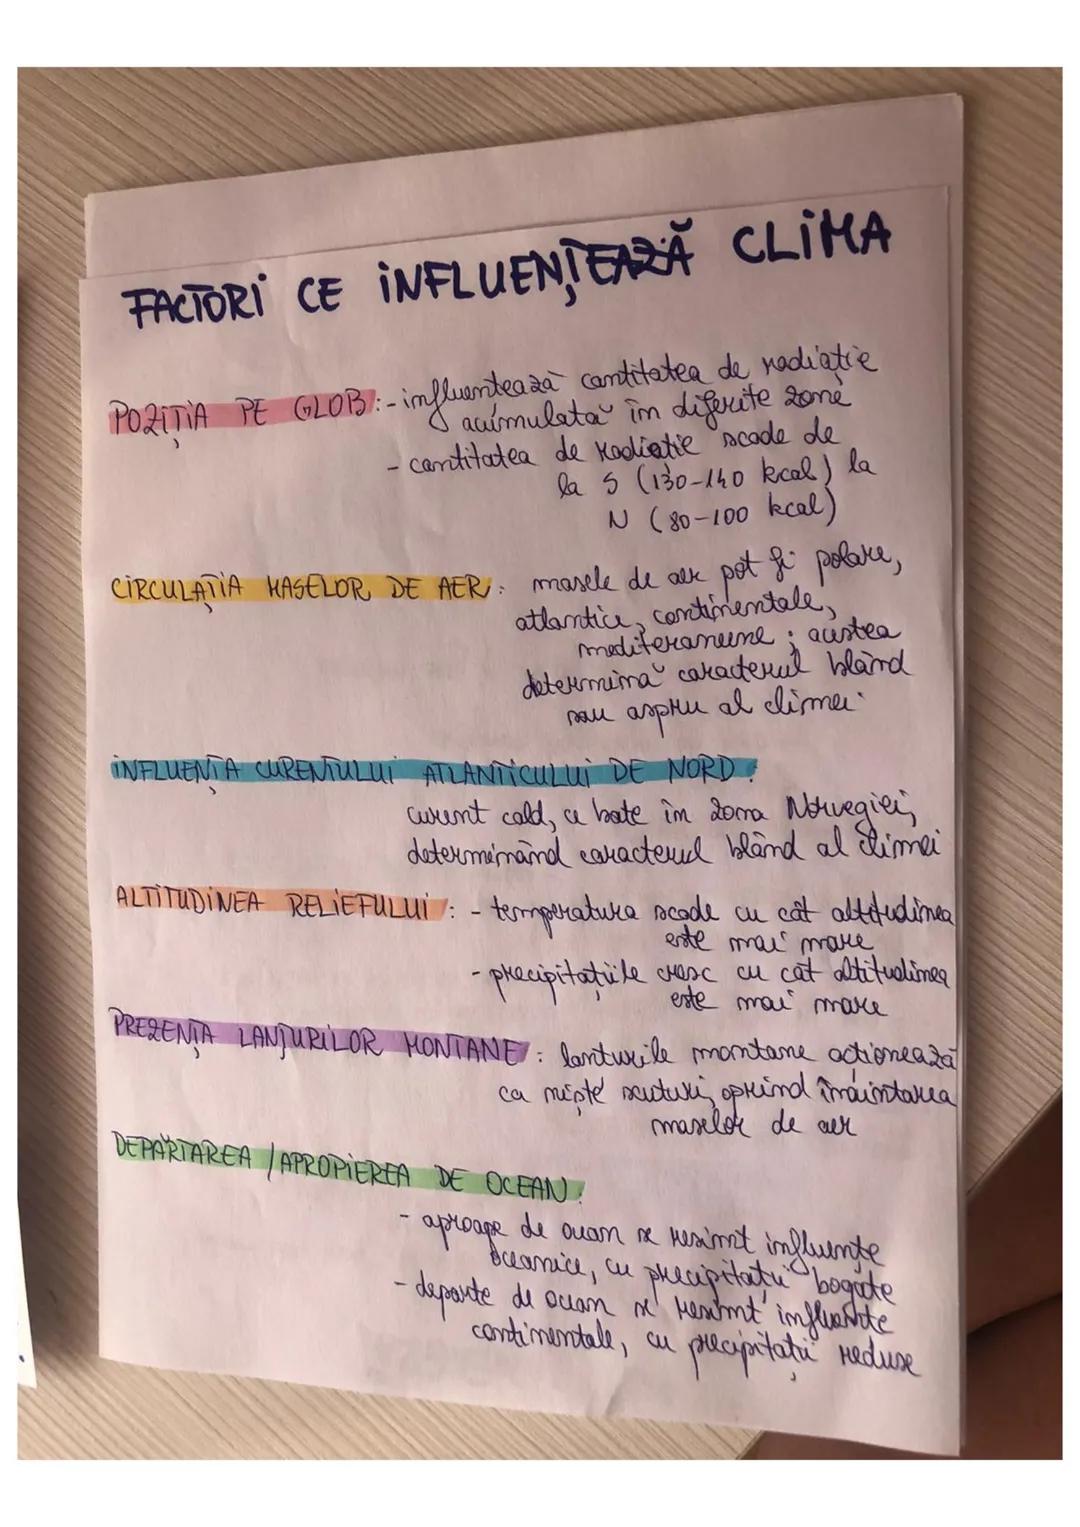 FACTORI CE INFLUENȚEAZĂ CLIMA
POZIȚIA PE GLOB: - influentează cantitatea de radiație
acumulată în diferite zone
- cantitatea de radiație scade de
la S (130-140 kcal) la
N (80-100 kcal)
CIRCULAȚIA MASELOR DE AER: masele de aer pot fi polare,
atlantice, continentale,
mediteraneene; acestea
determină caracterul blând
sau aspru al climei.
INFLUENȚA CURENTULUI ATLANTICULUI DE NORD:
curent cald, ce bate în zona Norvegiei,
determinând caracterul blând al climei
ALTITUDINEA RELIEFULUI: - temperatura scade cu cât altitudinea
este mai mare
- precipitațiile cresc cu cât altitudinea
este mai mare
PREZENȚA LANȚURILOR MONTANE: lanturile montane acționează
ca niște scuturi, oprind înaintarea
maselor de aer
DEPĂRTAREA / APROPIEREA DE OCEAN:
- aproape de ocean se resimt influențe
oceanice, cu precipitații bogate
- departe de ocean se resimt influente
continentale, cu precipitații reduse